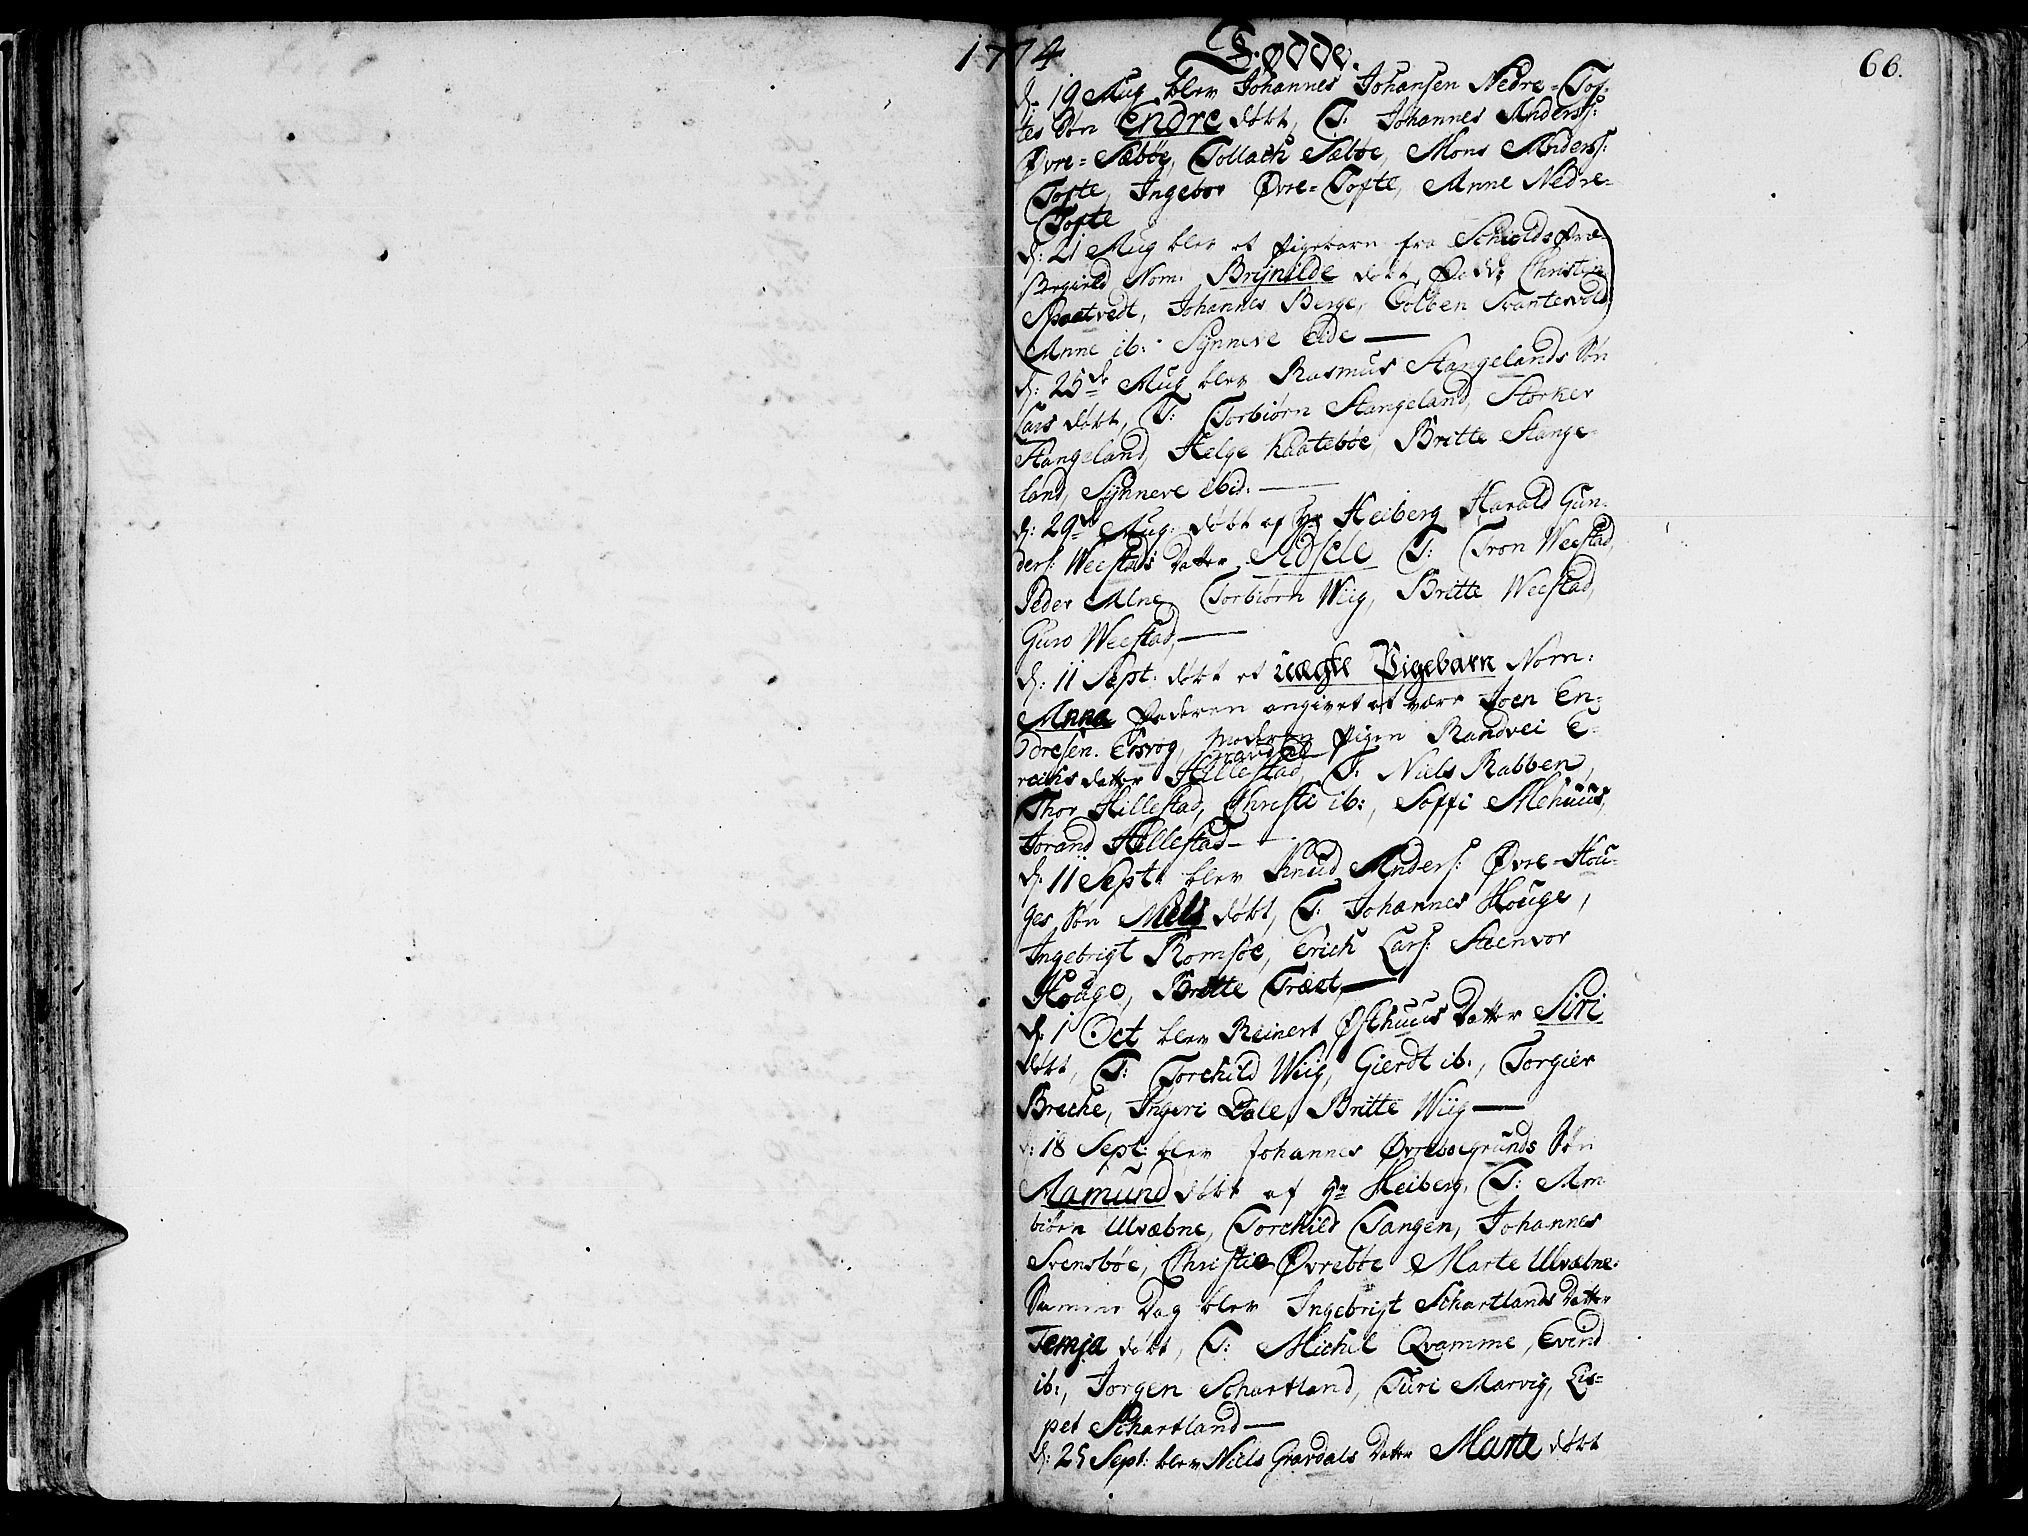 1774 Fødde. 66.
d. 19 Aug blev Johannes Johansen Nedre-Tof-
tes Søn Endre døbt, T: Johannes Anders:
Øvre-Sæbøe, Tollach Sæbøe, Mons Anders:
Tofte, Ingebor Øvre-Tofte, Anne Nedre-
Tofte
d: 21 Aug blev et Pigebarn fra Schiolds Præ-
Nom: Brynilde døbt, Fadd: Christen
Spaatvedt, Johannes Berge, Colben Svartevold
Anne ib: Synneve Eide —
d: 25de Aug blev Rasmus Stangelands Søn
Lars døbt, T: Torbiørn Stangeland, Storker
Stangeland, Helge Kaatebøe, Britte Stange-
land, Synneve ibid: —
d: 29de Aug: døbt af Hr Heiberg Harald Gun-
ders: Weestads Datter Adsele T: Tron Weestad,
Peder Alne, Torbiørn Wiig, Britte Weestad,
Guro Weestad, —
d: 11 Sept: døbt et uægte Pigebarn Nom:
Anna Faderen angivet at være Joen En-
dresen Ersvog, Moderen Pigen Randvei E-
richsdatter Hillestad, T: Niels Rabben,
Thor Hillestad, Christi ib:, Soffi Mehuus,
Jorand Hillestad —
d. 11 Sept: blev Knud Anders: Øvre-Hou-
ges Søn Niels døbt, T: Johannes Houge,
Ingebrigt Romsøe, Erich Lars: Steenvor
Houge, Britte Træet, —
d: 1 Oct blev Reinert Østhuus Datter Siri
døbt, T: Torchild Wiig, Gierdt ib:, Torgier
Breche, Ingeri Dale, Britte Wiig —
d: 18 Sept: blev Johannes Øvrebøegrunds Søn
Aamund døbt af Hr Heiberg, T: Am-
biørn Ulvæbne, Torchild Tangen, Johannes
Svensbøe, Christie Øvrebøe Marte Ulvæbne.
Samme Dag blev Ingebrigt Schartlands Datter
Temja døbt, T: Michel Qvamme, Evind
ib:, Jorgen Schartland, Turi Marvig, Lis-
pet Schartland —
d: 25 Sept: blev Niels Gravdals Datter Marte døbt